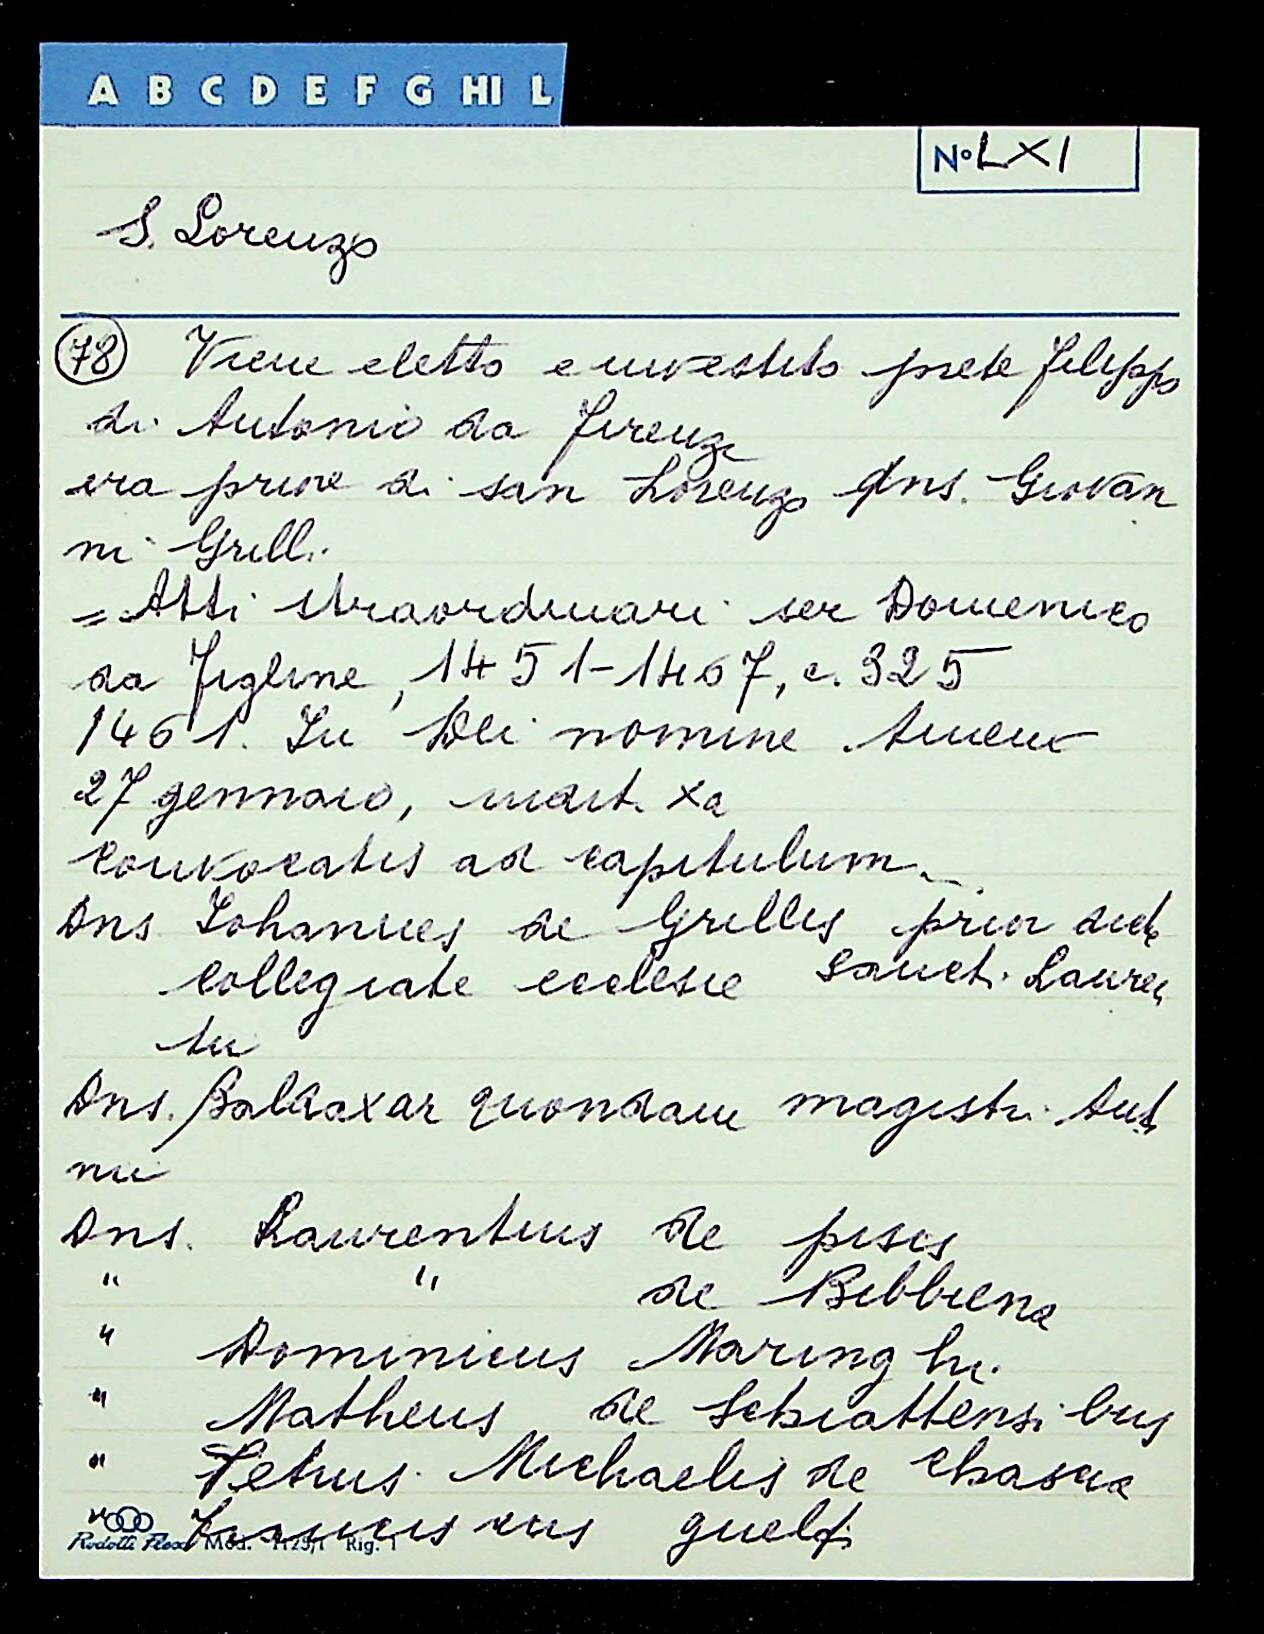 A B C D E F G HI L
N° LXI
S. Lorenzo
78 Viene eletto e investito prete Filippo
di Antonio da Firenze
era priore di san Lorenzo dns. Giovan
ni Grilli.
= Atti straordinari ser Domenico
da Figline, 1451-1467, c. 325
1461. In Dei nomine Amen
27 gennaio, indict. xa
Convocatis ad capitulum...
Dns Iohannes de Grillis prior dicte
collegiate ecclesie Sancti Lauren
tii
Dns. Baldaxar quondam magistri Anto
nii
Dns. Laurentius de pisis
" " de Bibbiena
" Dominicus Maringhi.
" Matheus de Schiattensibus
" Petrus Michaelis de
" Franciscus guelfi
Rodotti Flex Mod. 1125/1 Rig. 1